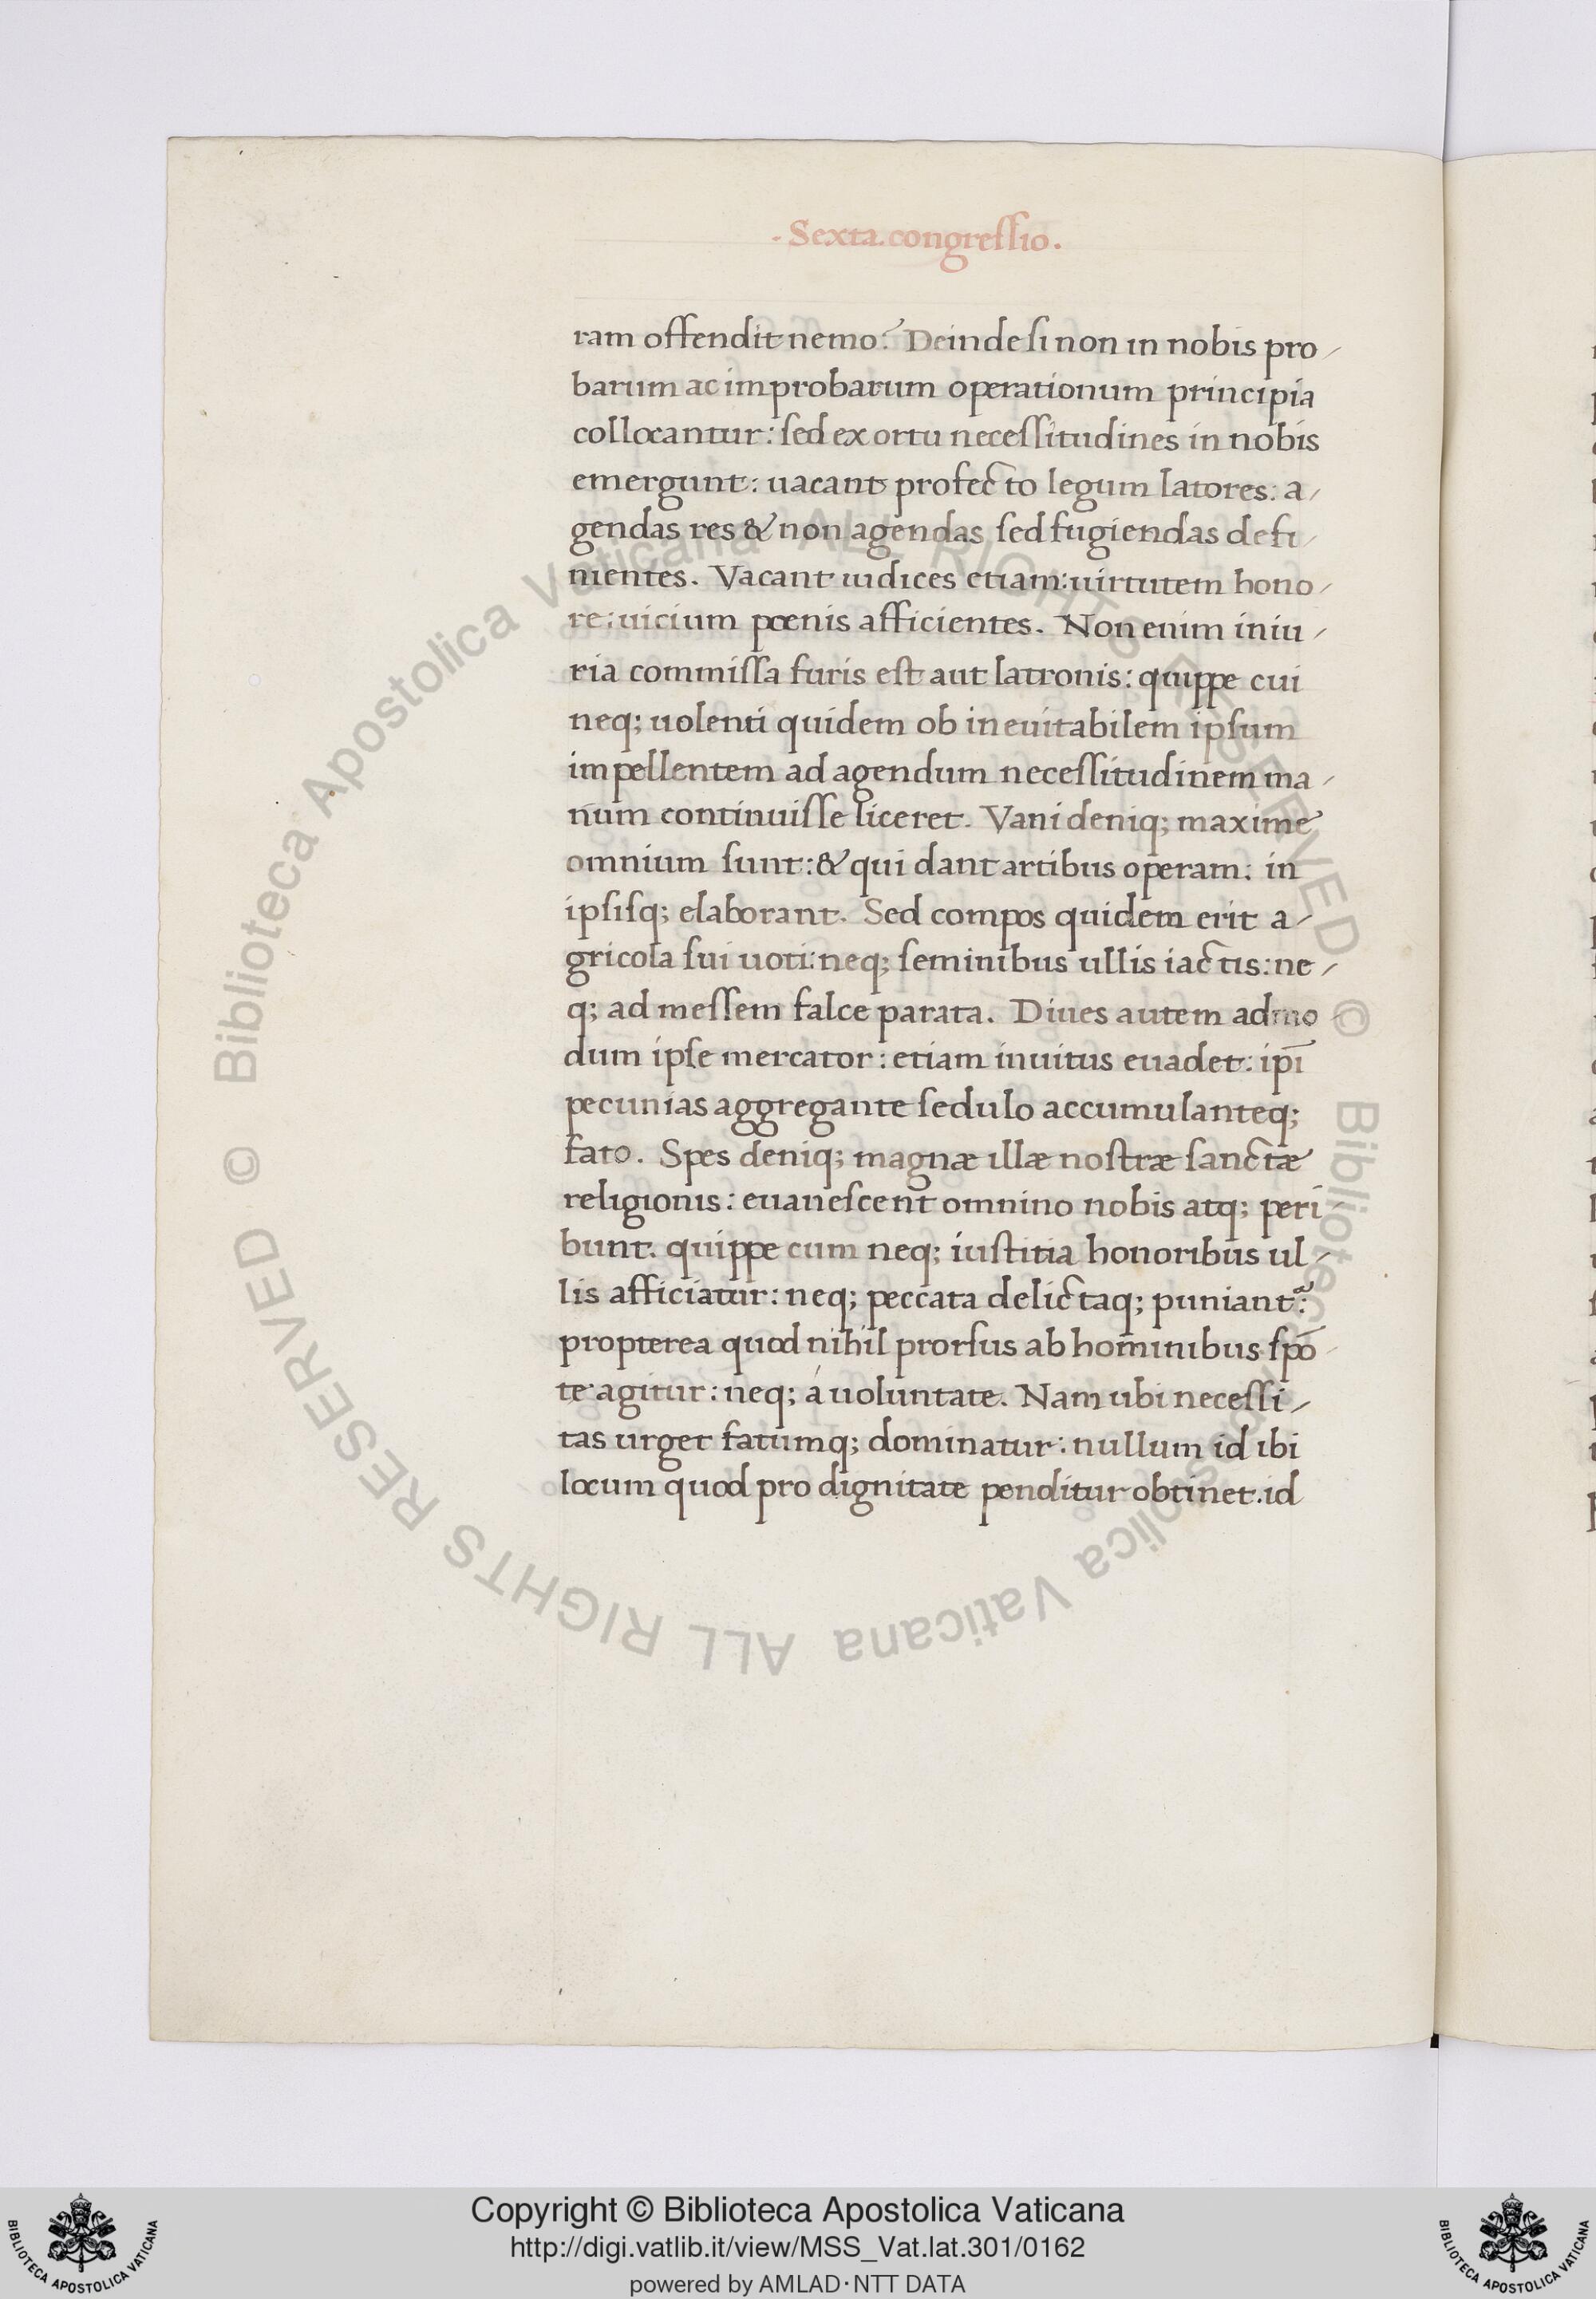 . Sexta. congressio.
ram offendit nemo? Deinde si non in nobis pro/
barum ac improbarum operationum principia
collocantur: sed ex ortu necessitudines in nobis
emergunt: uacant profecto legum latores: a/
gendas res & non agendas sed fugiendas defi/
nientes. Vacant iudices etiam: uirtutem hono/
re: uicium poenis afficientes. Non enim iniu/
ria commissa furis est aut latronis: quippe cui
neq; uolenti quidem ob ineuitabilem ipsum
impellentem ad agendum necessitudinem ma/
num continuisse liceret. Vani deniq; maxime
omnium sunt: & qui dant artibus operam: in
ipsisq; elaborant. Sed compos quidem erit a/
gricola sui uoti: neq; seminibus ullis iactis: ne/
q; ad messem falce parata. Diues autem admo/
dum ipse mercator: etiam inuitus euadet: ip̄i
pecunias aggregante sedulo accumulanteq;
fato. Spes deniq; magnæ illæ nostræ sanctæ
religionis: euanescent omnino nobis atq; peri/
bunt. quippe cum neq; iustitia honoribus ul/
lis afficiatur: neq; peccata delictaq; puniant᷑:
propterea quod nihil prorsus ab hominibus spō/
te agitur: neq; á uoluntate. Nam ubi necessi/
tas urget fatumq; dominatur: nullum id ibi
locum quod pro dignitate penditur obtinet. id
© Biblioteca Apostolica Vaticana ALL RIGHTS RESERVED
© Biblioteca Apostolica Vaticana ALL RIGHTS RESERVED
Copyright © Biblioteca Apostolica Vaticana
http://digi.vatlib.it/view/MSS_Vat.lat.301/0162
powered by AMLAD·NTT DATA
BIBLIOTECA APOSTOLICA VATICANA
BIBLIOTECA APOSTOLICA VATICANA